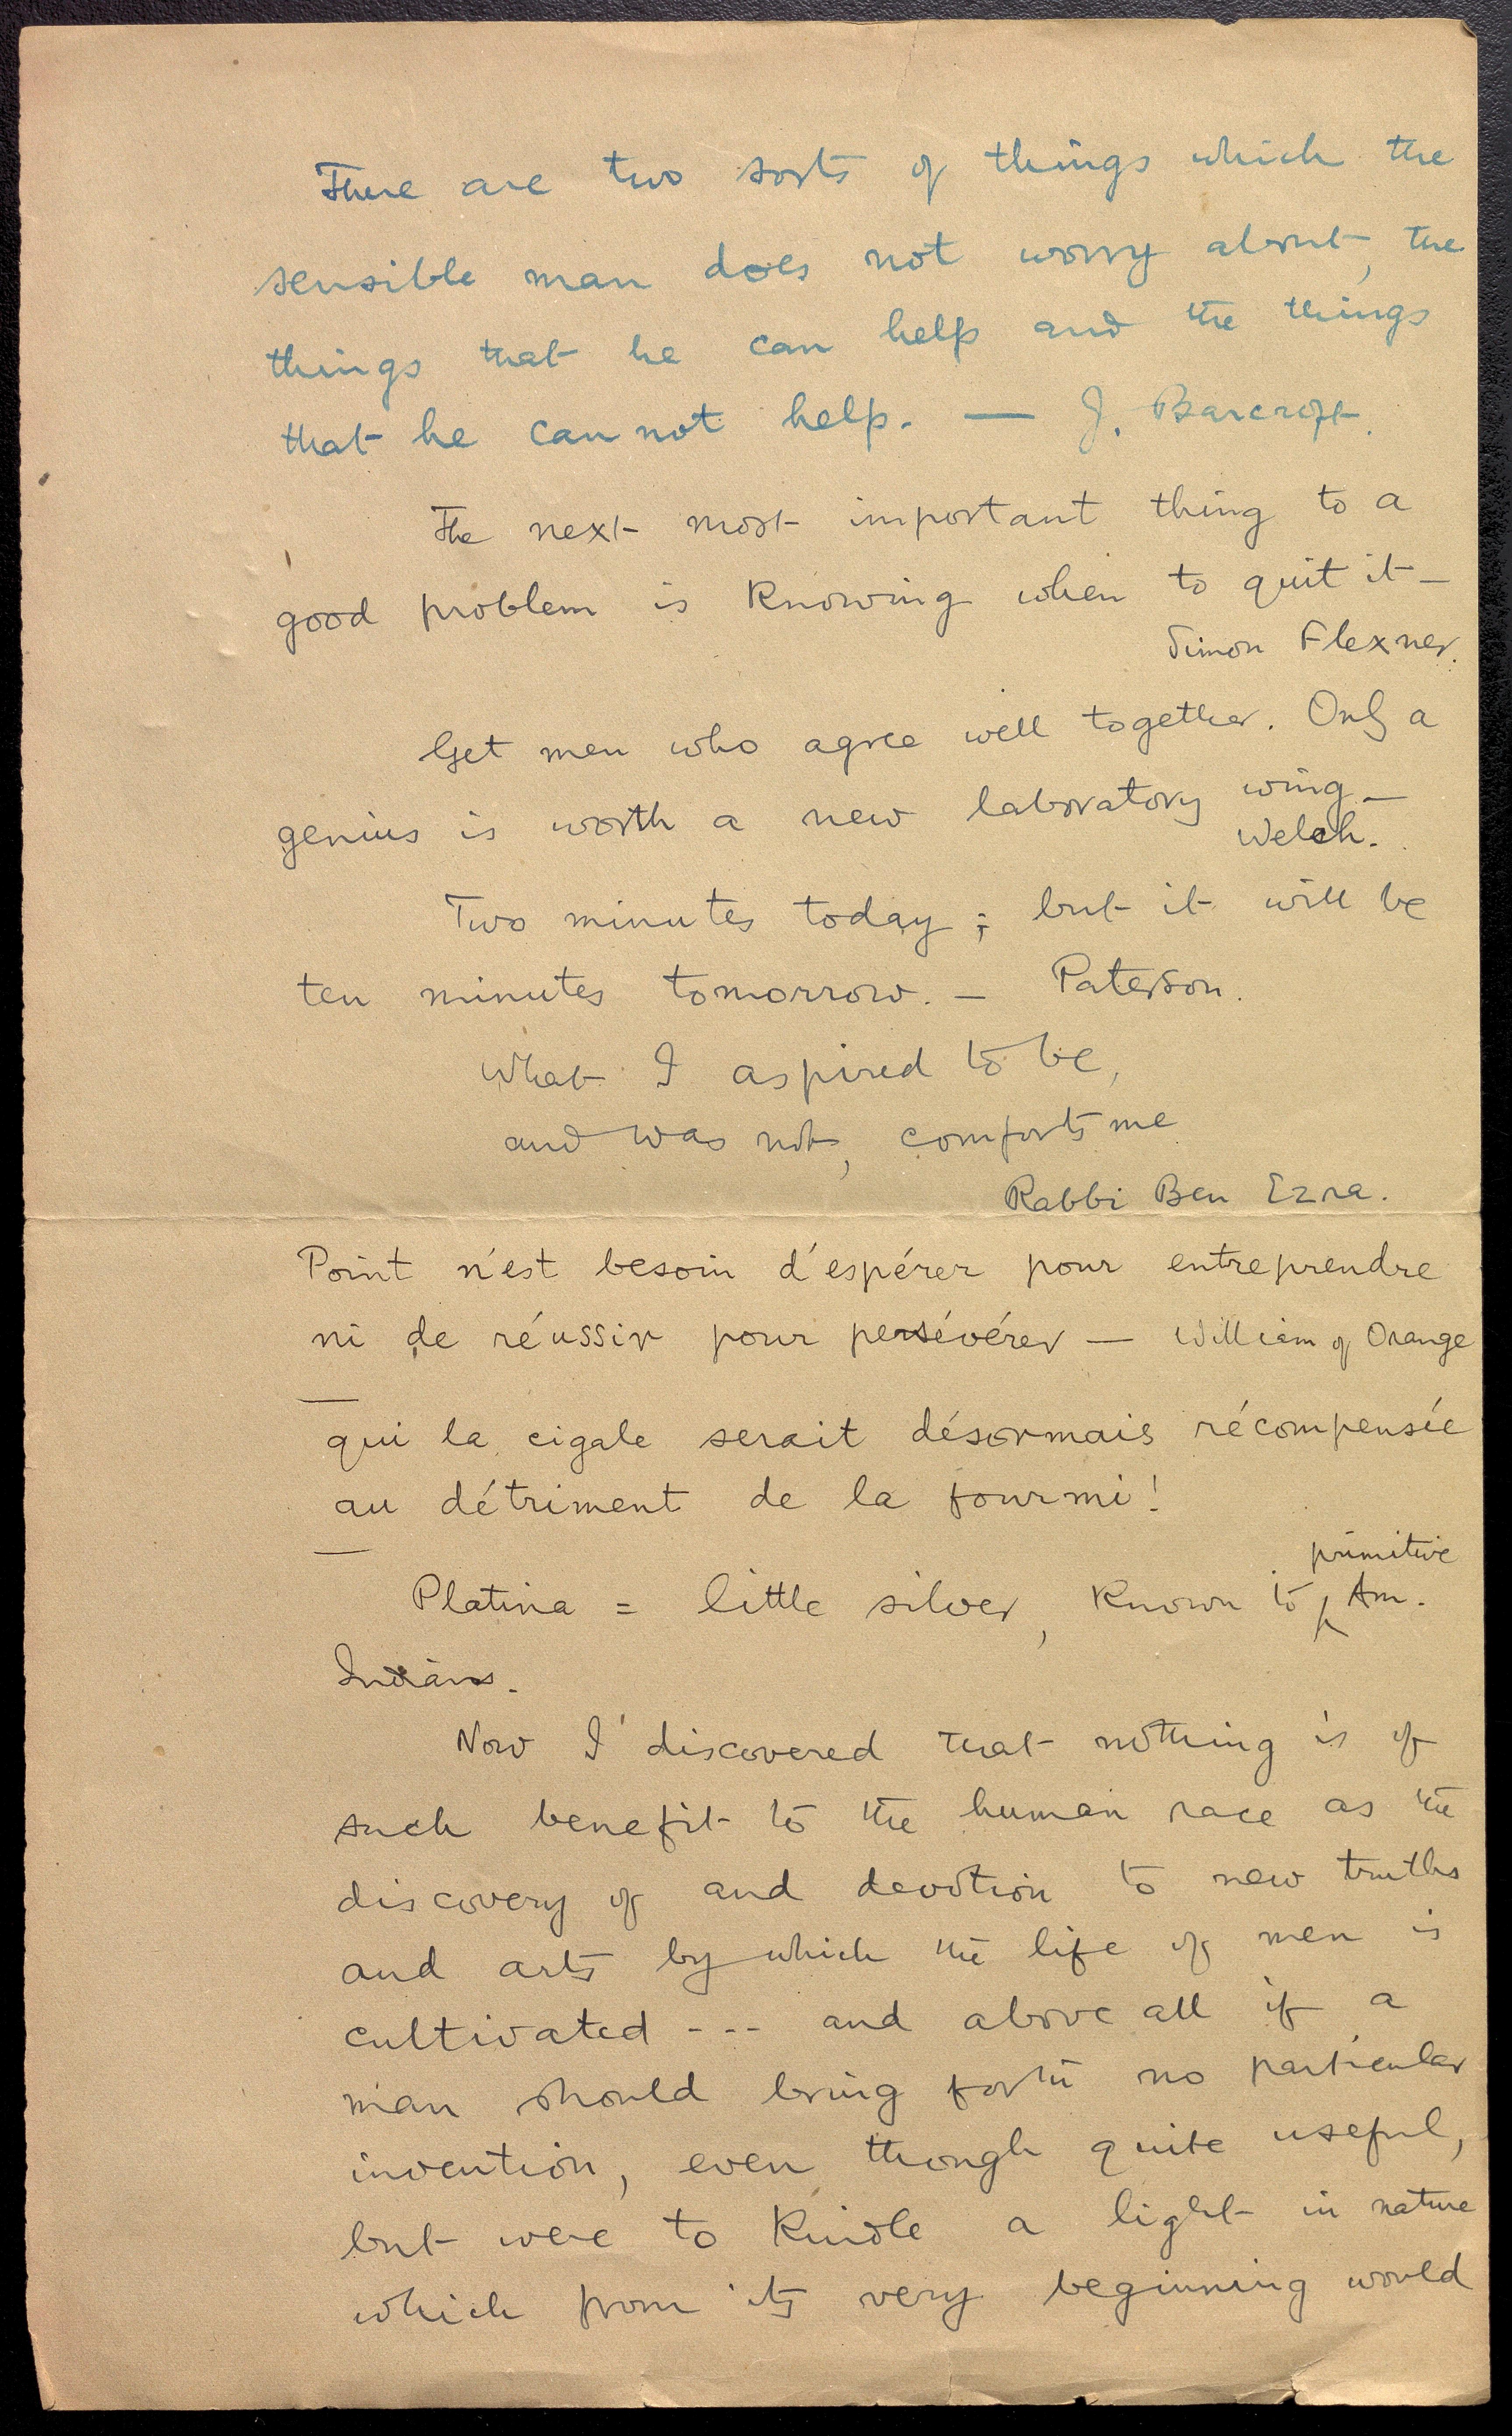 There are two sorts of things which the
sensible man does not worry about, the
things that he can help and the things
that he can not help. — J. Barcroft.
The next most important thing to a
good problem is knowing when to quit it —
Simon Flexner.
Get men who agree well together. Only a
genius is worth a new laboratory wing —
Welch.
Two minutes today; but it will be
ten minutes tomorrow. — Paterson.
What I aspired to be,
and was not, comforts me
Rabbi Ben Ezra.
Point n'est besoin d'espérer pour entreprendre
ni de réussir pour persévérer — William of Orange
—
qui la cigale serait désormais récompensée
au détriment de la fourmi!
—
primitive
Platina = little silver, known to ʌ Am.
Indians.
Now I discovered that nothing is of
such benefit to the human race as the
discovery of and devotion to new truths
and arts by which the life of men is
cultivated --- and above all if a
man should bring forth no particular
invention, even though quite useful,
but were to kindle a light in nature
which from its very beginning would